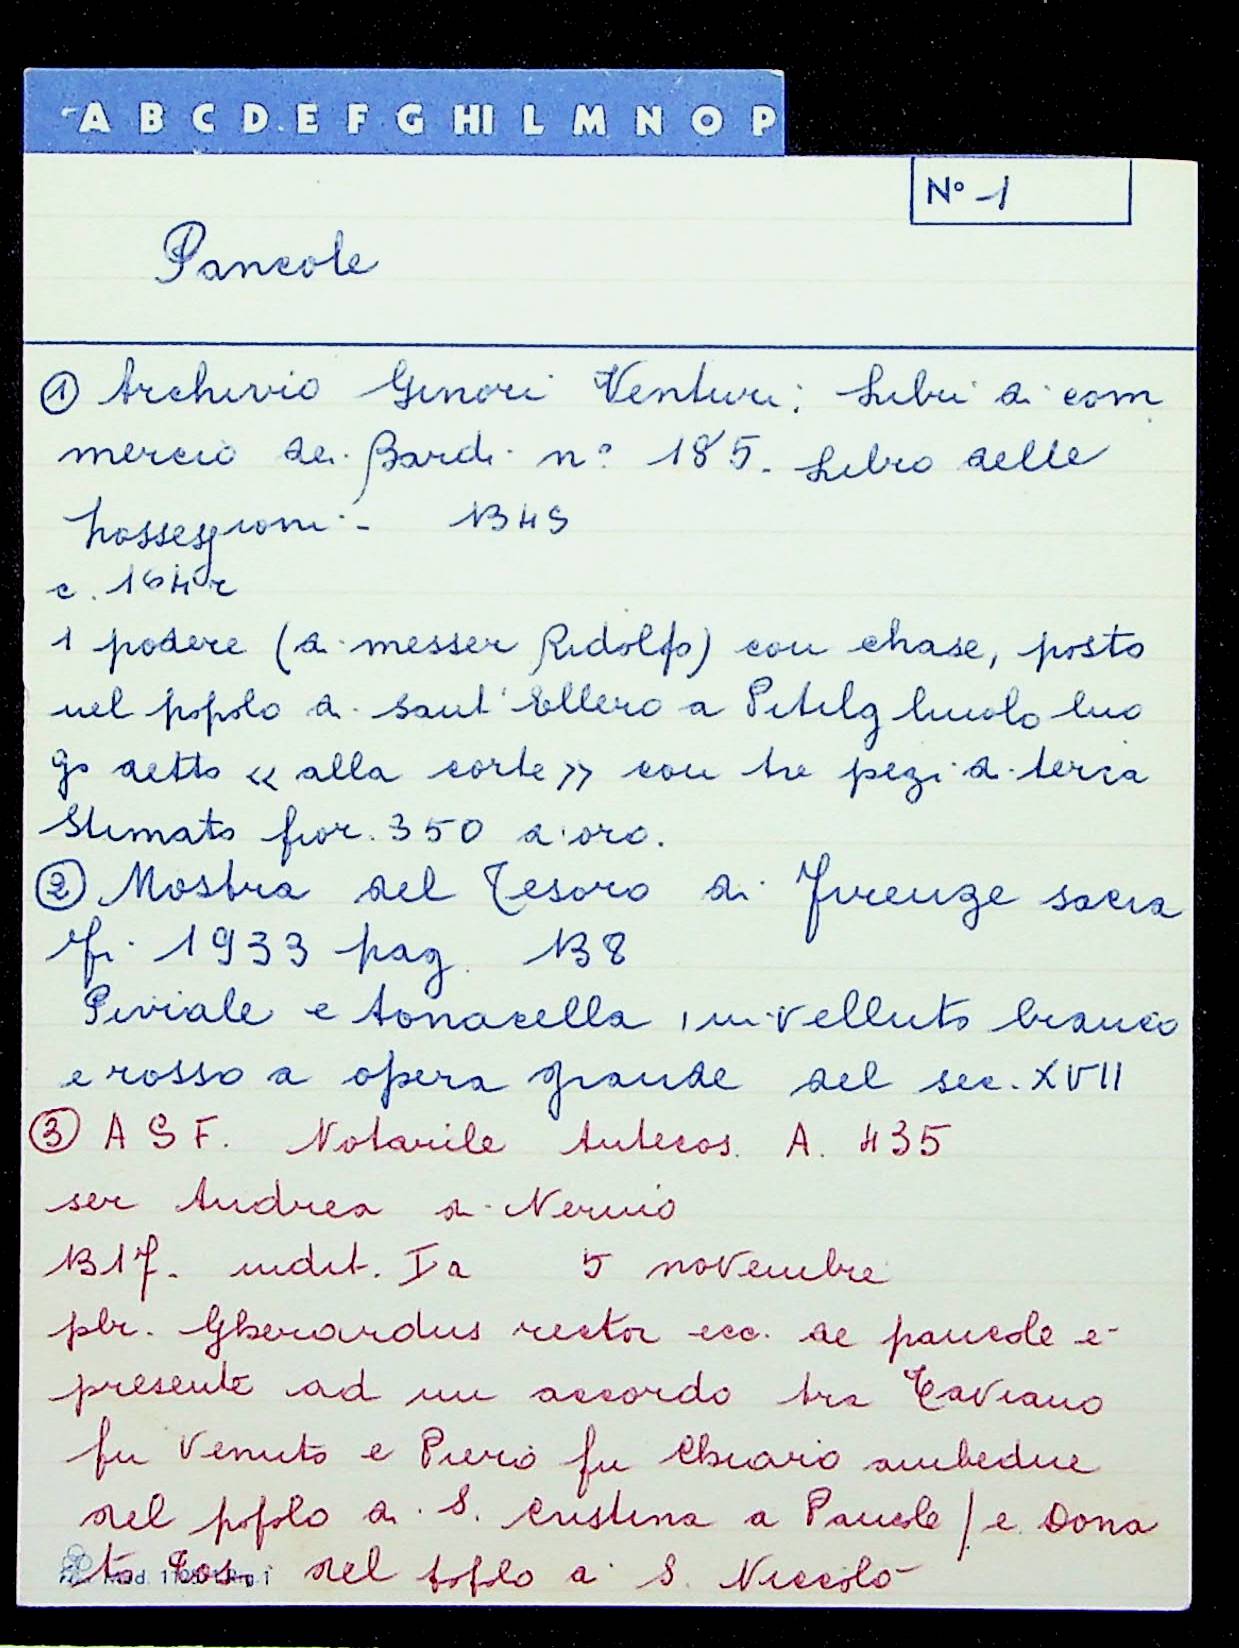 A B C D E F G HI L M N O P
N° 1
Pancole
① Archivio Ginori Venturi; Libri di com
mercio dei Bardi n° 185. Libro delle
possessioni - 1345
c. 164r
1 podere (di messer Ridolfo) con chase, posto
nel popolo di sant'Ellero a Pitilgliuolo luo
go detto « alla corte » con tre pezi di terra
Stimato fior. 350 d'oro.
② Mostra del Tesoro di Firenze sacra
Fi. 1933 pag. 138
Piviale e tonacella in velluto bianco
e rosso a opera grande del sec. XVII
③ A S F. Notarile Antecos. A. 435
ser Andrea di Nerino
1317. indit. Ia 5 novembre
pbr. Gherardus rector ecc. de pancole è
presente ad un accordo tra Taviano
fu Venuto e Piero fu Chiaro ambedue
del popolo di S. Cristina a Pancole / e Dona
to del popolo di S. Niccolò